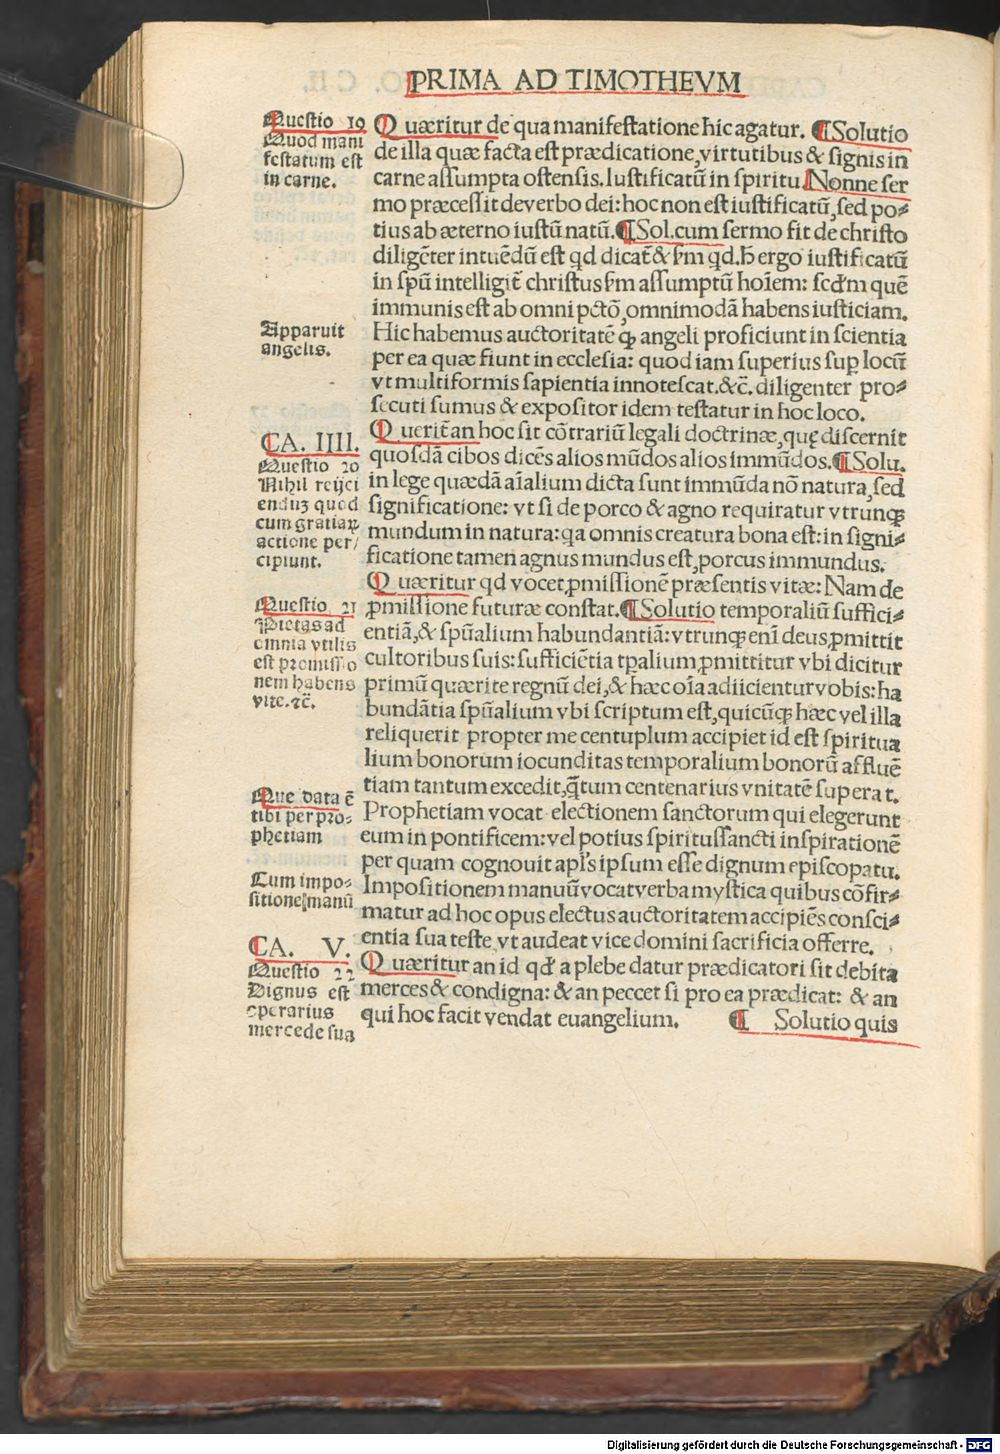 PRIMA AD TIMOTHEVM
Questio 19
Quod mani
festatum est
in carne.
Quæritur de qua manifestatione hic agatur. ¶Solutio
de illa quæ facta est prædicatione,virtutibus & signis in
carne assumpta ostensis.Iustificatū in spiritu.Nonne ser
mo præcessit de verbo dei: hoc non est iustificatū,sed po⸗
tius ab æterno iustū natū.¶Sol.cum sermo fit de christo
diligēter intuēdū est qd dicat̄ & ẜm qd.h̄ ergo iustificatū
in spū intelligit̄ christus ẜm assumptū hoīem: scd̄m quē
immunis est ab omni pctō,omnimodā habens iusticiam.
Apparuit
angelis.
Hic habemus auctoritatē ꝙ angeli proficiunt in scientia
per ea quæ fiunt in ecclesia: quod iam superius suꝑ locū
vt multiformis sapientia innotescat.&c̄. diligenter pro⸗
secuti sumus & expositor idem testatur in hoc loco.
CA. IIII.
Questio 20
Nihil reijci
enduꝫ quod
cum gratiaꝝ
actione per/
cipiunt.
Querit̄ an hoc sit cōtrariū legali doctrinæ,quę discernit
quosdā cibos dicēs alios mūdos alios immūdos.¶Solu.
in lege quædā aīalium dicta sunt immūda nō natura,sed
significatione: vt si de porco & agno requiratur vtrunqꝫ
mundum in natura: qa omnis creatura bona est: in signi⸗
ficatione tamen agnus mundus est,porcus immundus.
Questio 21
Pietas ad
omnia vtilis
est promissio
nem habens
vite.⁊c̄.
Quæritur qd vocet ꝓmissionē præsentis vitæ: Nam de
ꝓmissione futuræ constat.¶Solutio temporaliū suffici⸗
entiā,& spūalium habundantiā: vtrunqꝫ enī deus ꝓmittit
cultoribus suis: sufficiētia tꝑalium ꝓmittitur vbi dicitur
primū quærite regnū dei,& hæc oīa adiicientur vobis: ha
bundātia spūalium vbi scriptum est,quicūqꝫ hæc vel illa
reliquerit propter me centuplum accipiet id est spiritua
lium bonorum iocunditas temporalium bonorū affluē
tiam tantum excedit,q̄tum centenarius vnitatē superat.
Que data ē
tibi per pro⸗
phetiam
Prophetiam vocat electionem sanctorum qui elegerunt
eum in pontificem: vel potius spiritussancti inspirationē
per quam cognouit apl's ipsum esse dignum episcopatu.
Cum impo⸗
sitione manū
Impositionem manuū vocat verba mystica quibus cōfir⸗
matur ad hoc opus electus auctoritatem accipiēs consci⸗
entia sua teste,vt audeat vice domini sacrificia offerre.
CA. V.
Questio 22
Dignus est
operarius
mercede sua
Quæritur an id qd' a plebe datur prædicatori sit debita
merces & condigna: & an peccet si pro ea prædicat: & an
qui hoc facit vendat euangelium. ¶ Solutio quis
Digitalisierung gefördert durch die Deutsche Forschungsgemeinschaft - DFG